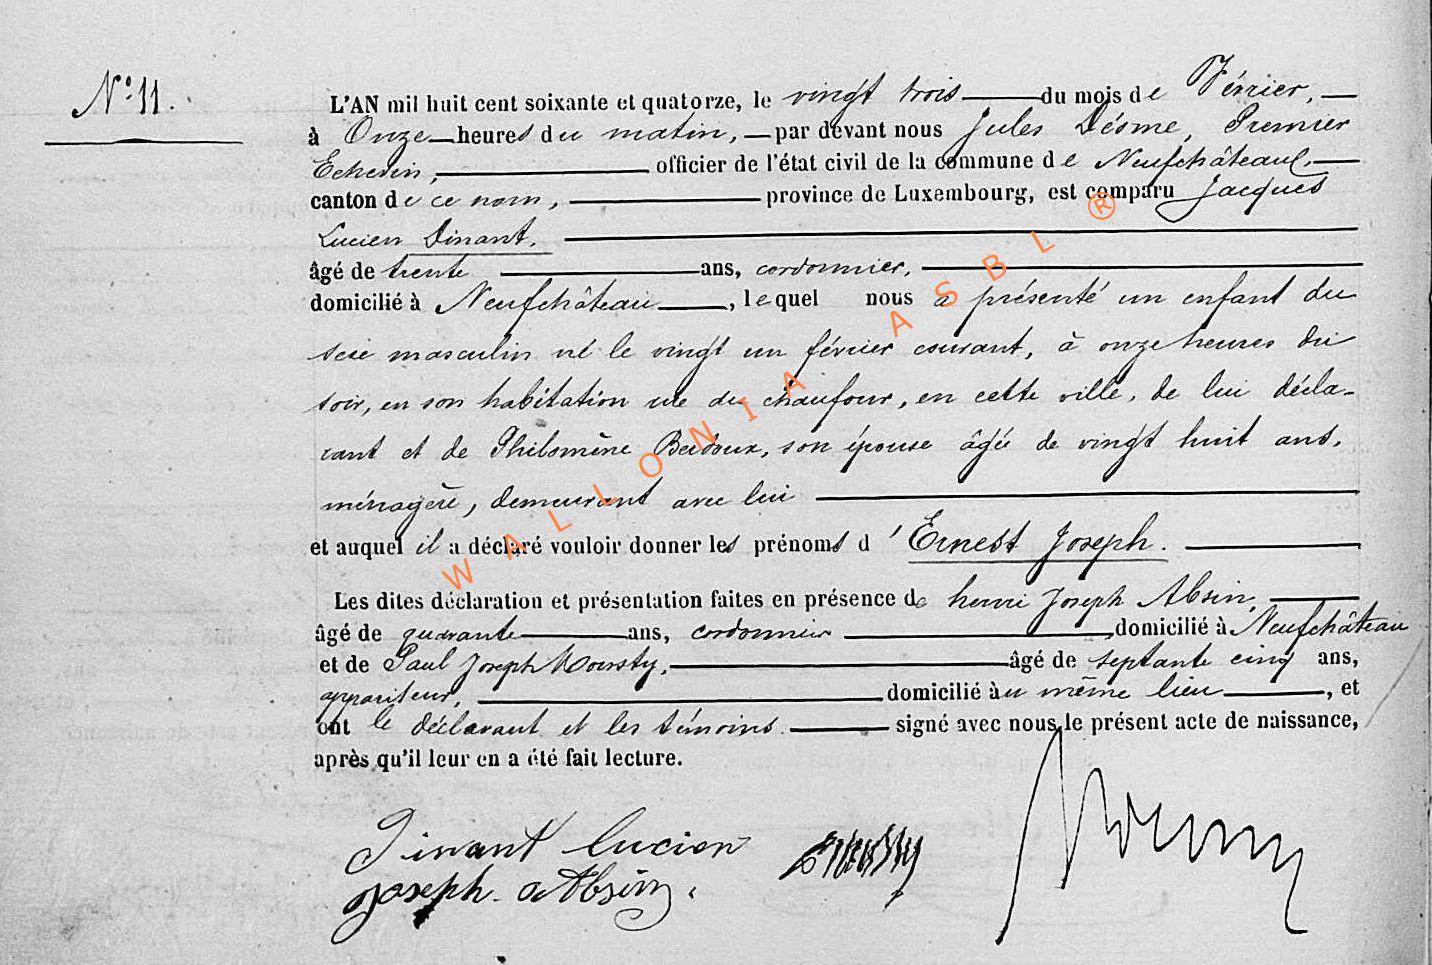 N° 11.
L'AN mil huit cent soixante et quatorze, le vingt trois du mois de Février,
à Onze heures du matin, par devant nous Jules Désme, Premier
Echevin, officier de l'état civil de la commune de Neufchâteau,
canton de ce nom, province de Luxembourg, est comparu Jacques
Lucien Dinant,
âgé de trente ans, cordonnier,
domicilié à Neufchâteau, lequel nous a présenté un enfant du
sexe masculin né le vingt un février courant, à onze heures du
soir, en son habitation rue du chaufour, en cette ville, de lui décla-
rant et de Philomène son épouse âgée de vingt huit ans,
ménagère, demeurant avec lui
et auquel il a déclaré vouloir donner les prénoms d'Ernest Joseph.
Les dites déclaration et présentation faites en présence de henri Joseph Absin,
âgé de quarante ans, cordonnier domicilié à Neufchâteau
et de Paul Joseph âgé de septante cinq ans,
appariteur, domicilié au même lieu, et
ont le déclarant et les témoins signé avec nous le présent acte de naissance,
après qu'il leur en a été fait lecture.
Dinant Lucien
Joseph Absin
WALLONIA ASBL ®